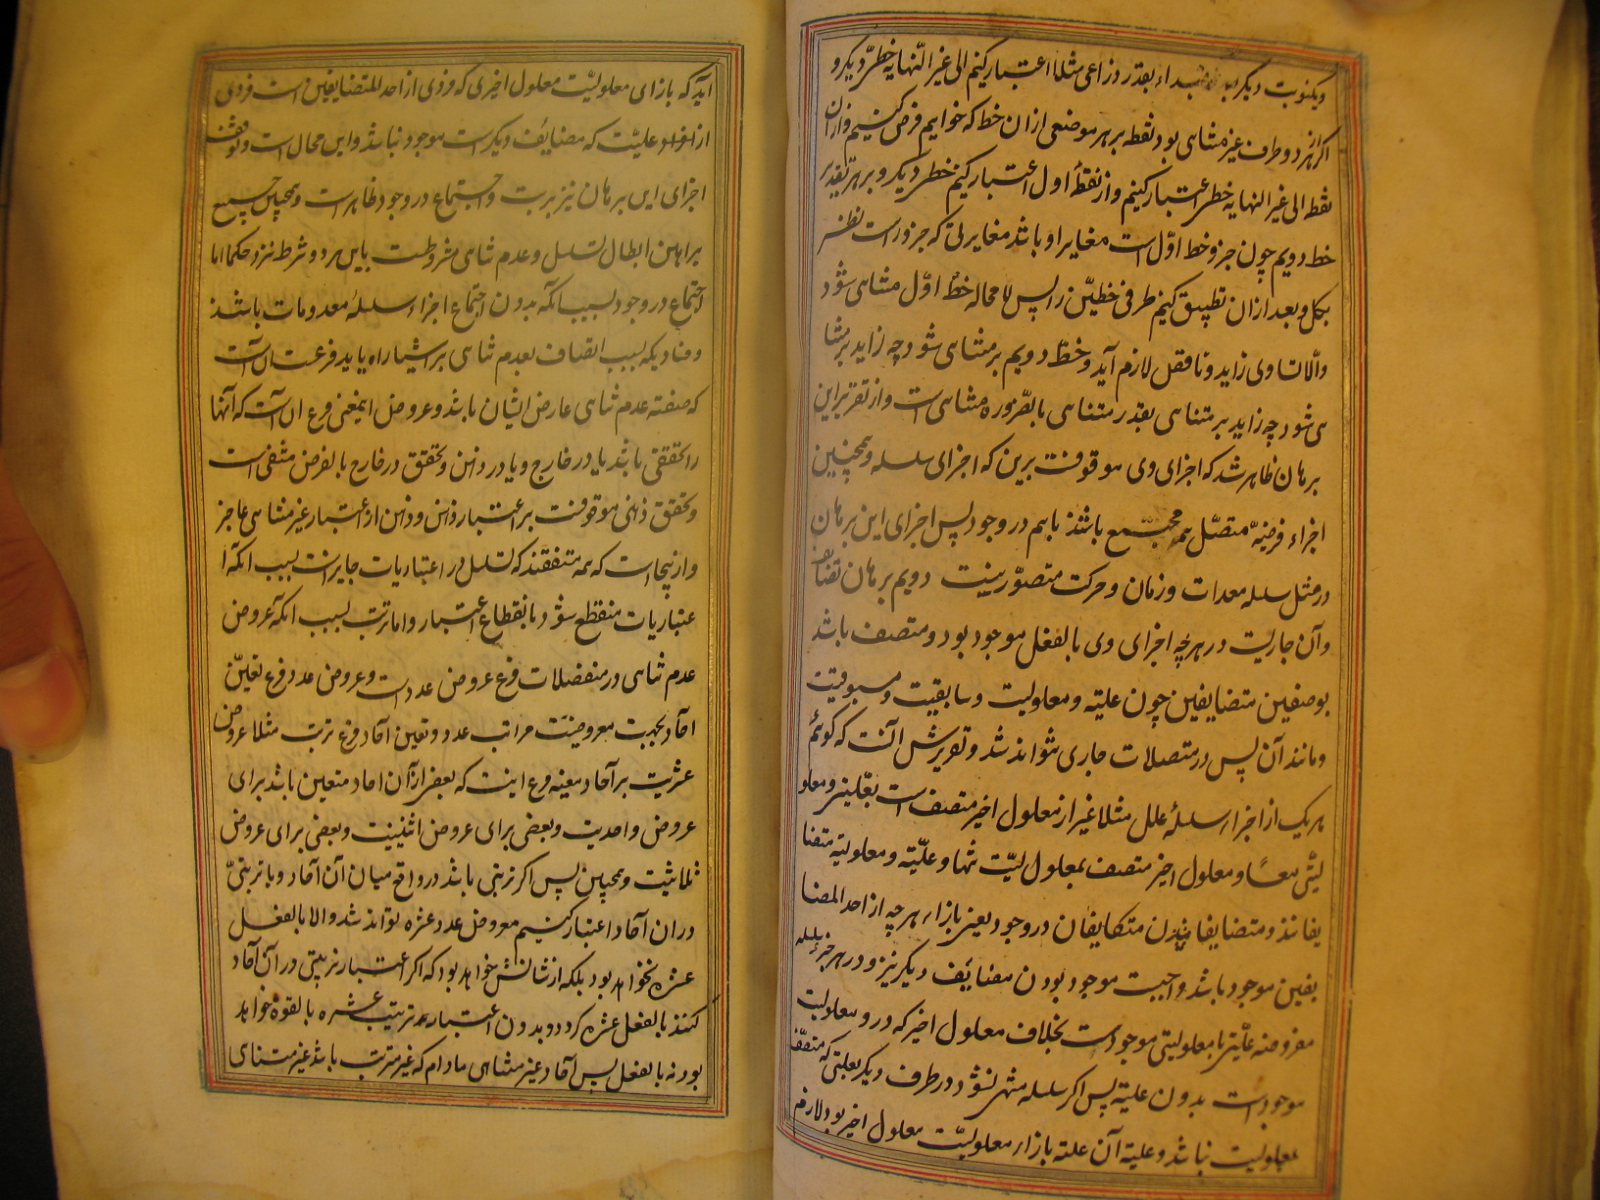 و یکنوبت دیگر بعد مبداء بقدر ذراعی مثلا اعتبار کنیم الی غیر النهایه خطی دیگر و
اگر از هر دو طرف غیر متناهی بود نقطه بر هر موضعی از ان خط که خواهیم فرض کنیم و از ان
نقطه الی غیر النهایه خطی اعتبار کنیم و از نقطهٔ اول اعتبار کنیم خطی دیگر و بر هر تقدیر
خط دویم چون جزو خط اوّل است مغایر او باشد مغایرتی که جزو راست نظر
بکل و بعد از ان تطبیق کنیم طرفی خطیّن را پس لا محاله خط اوّل متناهی شود
والّا تساوی زاید و ناقص لازم آید و خط دویم بر متناهی شود چه زاید بر متنا
هی شود چه زاید بر متناهی بقدر متناهی بالضّروره متناهی است و از تقریر این
برهان ظاهر شد که اجرای وی موقوفت برین که اجزای سلسله و همچنین
اجزاء فرضیّه متصّل همه مجتمع باشند باهم در وجود پس اجرای این برهان
در مثل سلسله معدات و زمان و حرکت متصوّر نیست دویم برهان تضایف
و آن جاریست در هر چه اجزای وی بالفعل موجود بود و متصف باشد
بوصفین متضایفین چون علیته و معلولیت و سابقیت و مسبوقیت
و مانند آن پس در متصلات جاری نتواند شد و تقریرش آنست که گوئم
هر یک از اجزاء سلسلهٔ علل مثلا غیر از معلول اخیر متصف است بعلیتی و معلو
لیتّی معًا و معلول اخیر متصف بمعلول لیّت تنها و علّیته و معلولیته متضا
یفانند و متضایفان متکایفان در وجود یعنی بازاء هر چه از احد المتضا
یفین موجود باشد واجبست موجود بودن مضایف دیگر نیز و در هر جزء سلسله
مفروضه علّیتی با معلولیتی موجودست بخلاف معلول اخیر که درو معلولیت
موجود است بدون علیته پس اگر سلسله منتهی نشود در طرف دیگر بعلتی که متصف
بمعلولیت نباشد و علیته آن علته بازاء معلولیّت معلول اخیر بود لازم
آید که بازای معلولیّت معلول اخیری که فردی از احد المتضایفین است فردی
از افراد علیّت که مضایف دیگرست موجود نباشد و این محال است و توقف
اجرای این برهان نیز بر ترتب و اجتماع در وجود ظاهر است و همچنین جمیع
براهین ابطال تسلسل و عدم تناهی مشروطست باین هر دو شرط نزد حکما اما
اجتماع در وجود بسبب انکه بدون اجتماع اجزاء سلسلهٔ معدومات باشند
و فنادیکه بسبب اتصاف بعدم تناهی بر اشیا راه یابد فرع انست
که صفته عدم تناهی عارض ایشان باشد و عروض اینمعنی فرع ان است که آنها
را تحققی باشد یا در خارج و یا در ذهن و تحقق در خارج بالفرض منتفی است
و تحقق ذهنی موقوفت بر اعتبار ذهن و ذهن از اعتبار غیر متناهی عاجز
و از ینجاست که همه متفقند که تسلسل در اعتباریات جایز است بسبب انکه ا
عتباریات منقطع شود بانقطاع اعتبار و اما ترتب بسبب انکه عروض
عدم تناهی در منفصلات فرع عروض عددست و عروض عدد فرع تعیّن
احاد بجهت معروضیّت مراتب عدد و تعین آحاد فرع ترتب مثلا عروض
عشریت بر آحاد معینه فرع اینست که بعضی از آن احاد متعین باشد برای
عروض واحدیت و بعضی برای عروض اثنینیت و بعضی برای عروض
ثلاثیت و همچنین پس اگر ترتبی باشد در واقع میان آن آحاد و یا ترتبیّ
در ان آحاد اعتبار کنیم معروض عدد عشره تواند شد والا بالفعل
عشره نخواهد بود بلکه از شانش خواهد بود که اگر اعتبار ترتبی در آن آحاد
کنند بالفعل عشره گردد و بدون اعتبار ترتیب عشره بالقوه خواهد
بود نه بالفعل پس آحاد غیر متناهی مادام که غیر مترتب باشد غیر متناهی